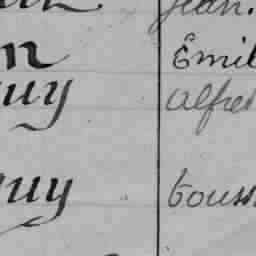 Jean.
n Emil
uy alfre
uy touss